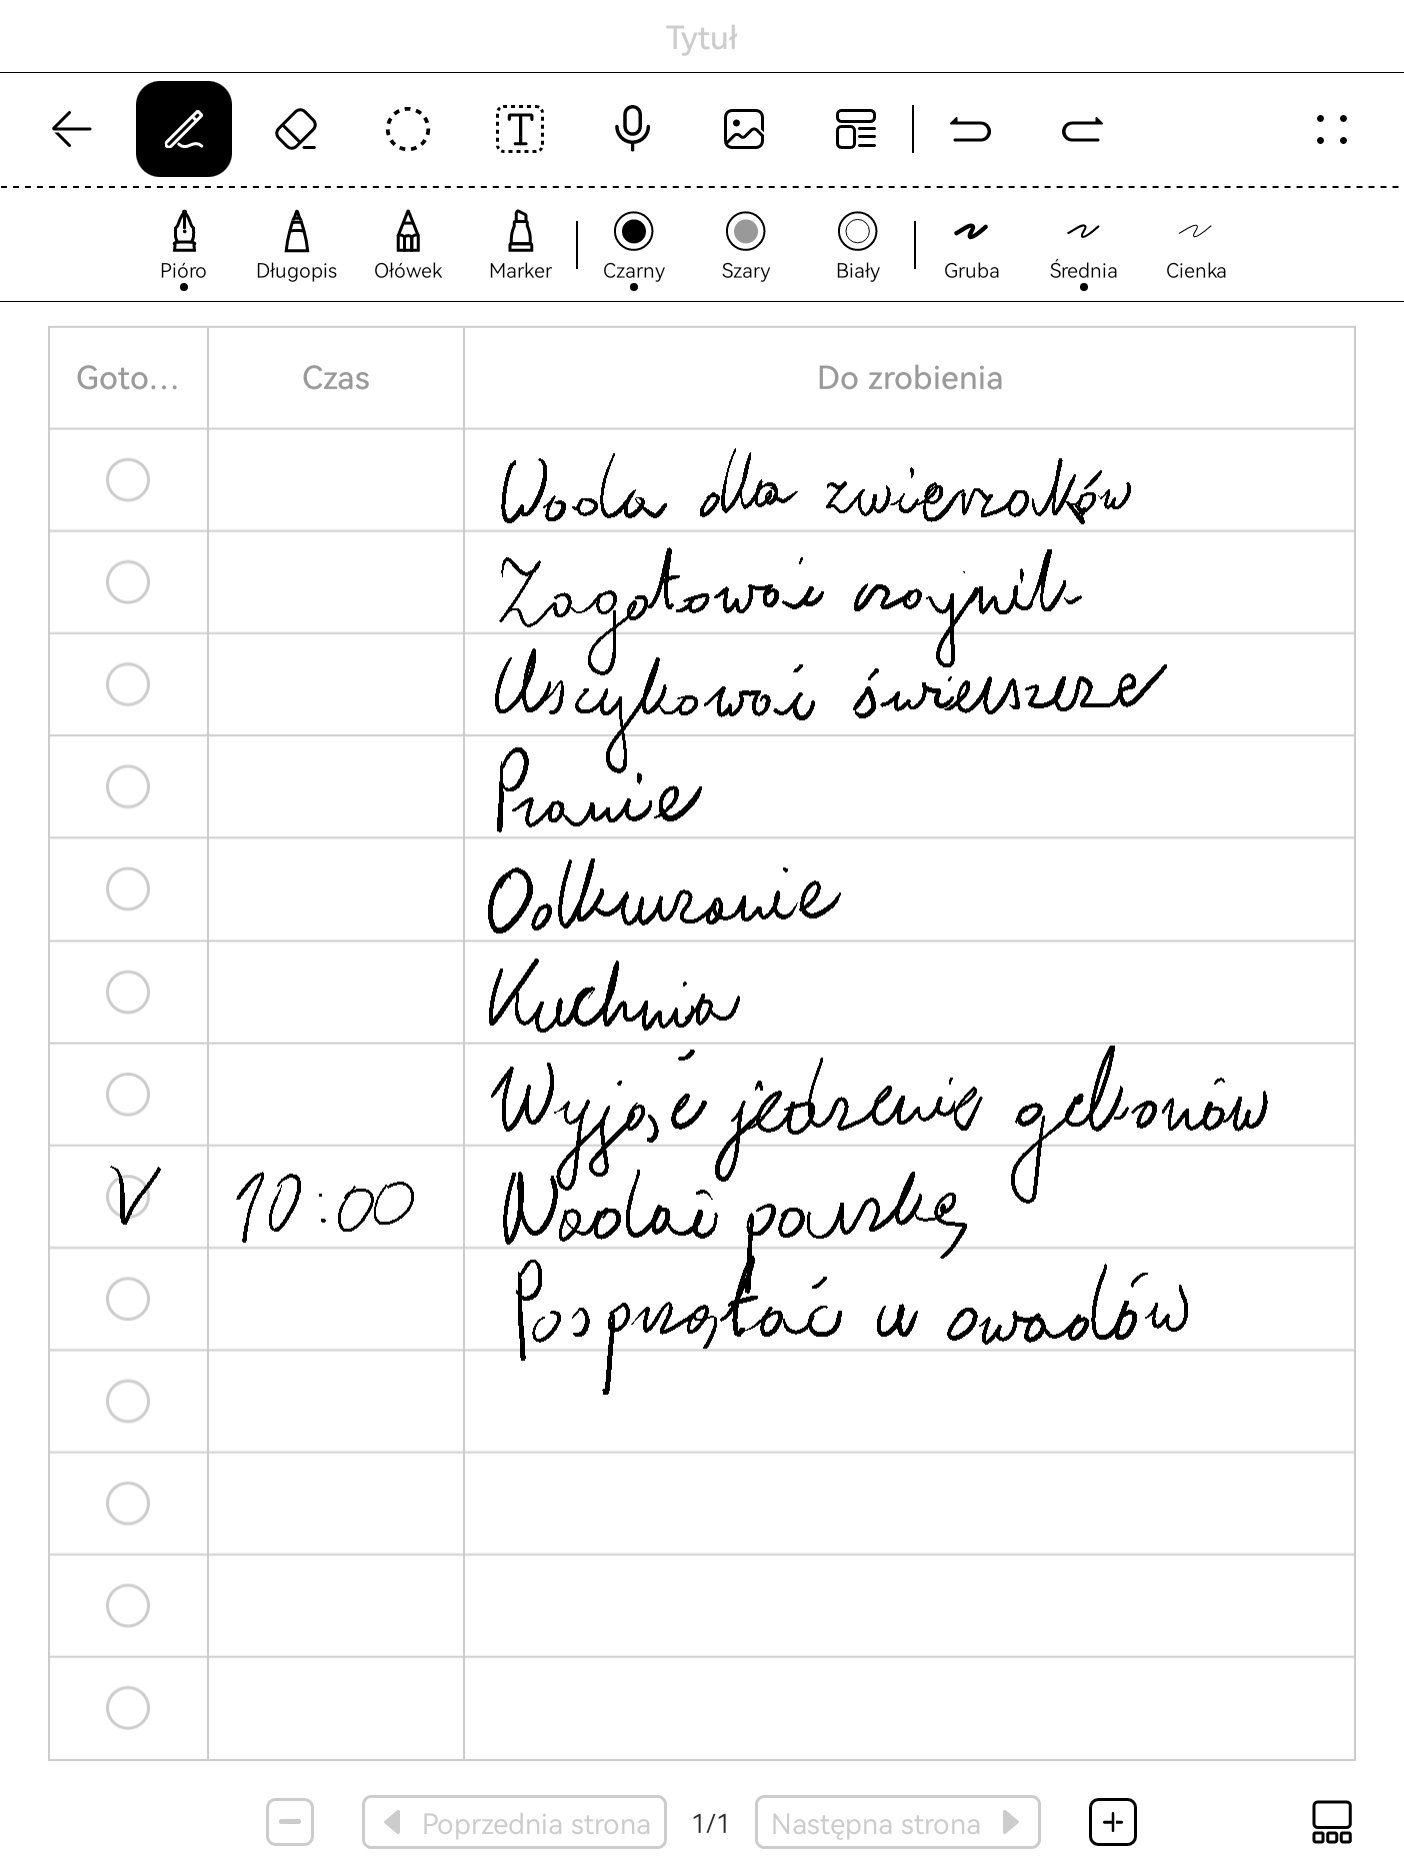 Tytuł
Pióro Długopis Ołówek Marker Czarny Szary Biały Gruba Średnia Cienka
Goto... Czas Do zrobienia
Woda dla zwierzaków
Zagotować czajnik
świerszcze
Pranie
Odkurzanie
Kuchnia
Wyjąć jedzenie gekonów
V 10:00 Nadać paczkę
Posprzątać u owadów
Poprzednia strona 1/1 Następna strona